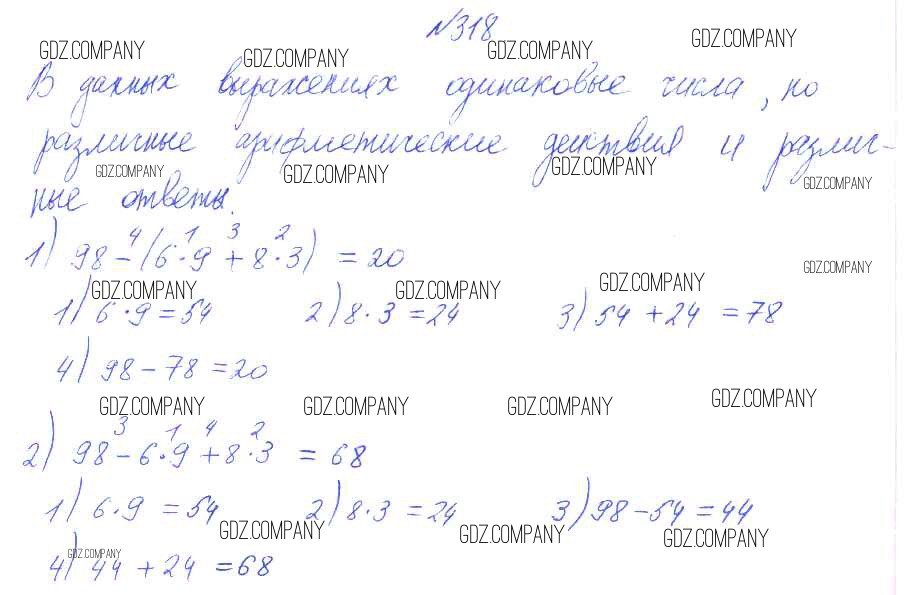 №318
GDZ.COMPANY GDZ.COMPANY GDZ.COMPANY GDZ.COMPANY
В данных выражениях одинаковые числа, но
различные арифметические действия и различ-
GDZ.COMPANY GDZ.COMPANY GDZ.COMPANY GDZ.COMPANY
ные ответы.
4 1 3 2
1) 98 - (6 · 9 + 8 · 3) = 20
GDZ.COMPANY GDZ.COMPANY GDZ.COMPANY GDZ.COMPANY
1) 6 · 9 = 54 2) 8 · 3 = 24 3) 54 + 24 = 78
4) 98 - 78 = 20
GDZ.COMPANY GDZ.COMPANY GDZ.COMPANY GDZ.COMPANY
3 1 4 2
2) 98 - 6 · 9 + 8 · 3 = 68
1) 6 · 9 = 54 2) 8 · 3 = 24 3) 98 - 54 = 44
GDZ.COMPANY GDZ.COMPANY GDZ.COMPANY GDZ.COMPANY
4) 44 + 24 = 68